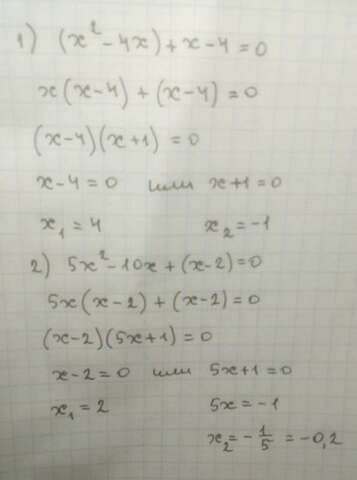 1) (x² - 4x) + x - 4 = 0
x(x-4) + (x-4) = 0
(x-4)(x+1) = 0
x-4=0 или x+1=0
x₁ = 4 x₂ = -1
2) 5x² - 10x + (x-2) = 0
5x(x-2) + (x-2) = 0
(x-2)(5x+1) = 0
x-2=0 или 5x+1=0
x₁ = 2 5x = -1
x₂ = -1/5 = -0,2